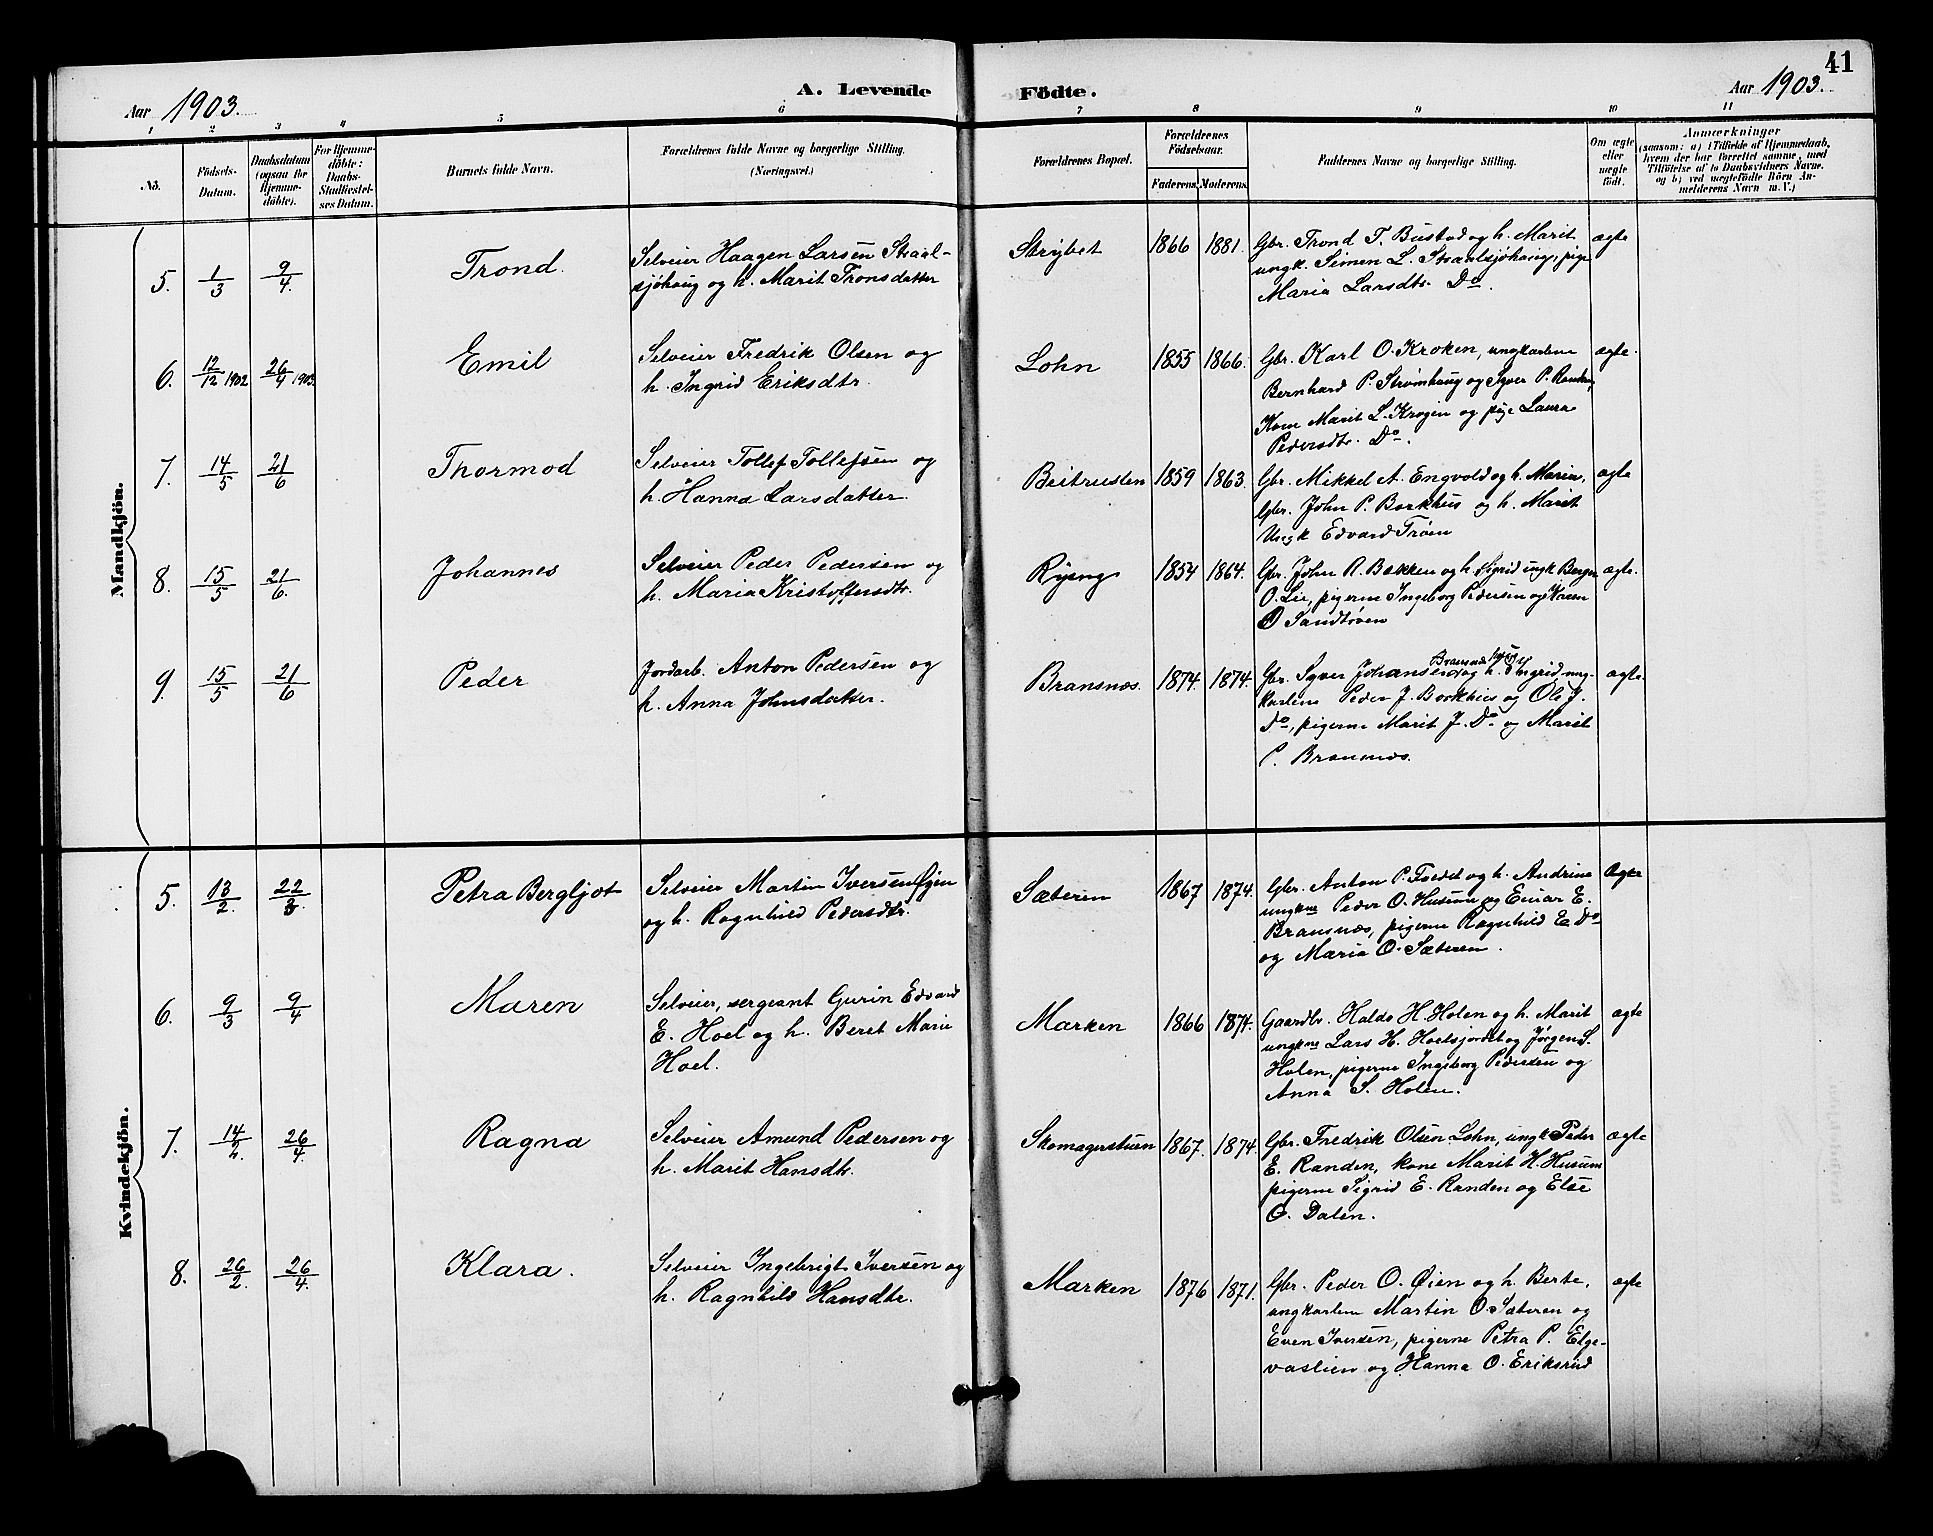 41
Aar 1903.
A. Levende Födte.
Aar 1903.
1 2 3 4 5 6 7 8 9 10 11
No.
Födsels-Datum.
Daabsdatum (ogsaa for Hjemme-döbte).
For Hjemme-döbte: Daabs-Stadfæstel-ses Datum.
Barnets fulde Navn.
Forældrenes fulde Navne og borgerlige Stilling.
(Næringsvei.)
Forældrenes Bopæl.
Forældrenes Födselsaar.
Faderens. Moderens.
Faddernes Navne og borgerlige Stilling.
Om ægte eller uægte födt.
Anmærkninger
(saasom: a) i Tilfælde af Hjemmedaab,
hvem der har forrettet samme, med
Tilföielse af to Daabsvidners Navne.
og b) ved uægtefödte Börn An-
melderens Navn m. V.)
Mandkjön.
5. 1/3 9/4. Trond. Selveier Haagen Larsen Straal-
sjöhaug og h. Marit Tronsdatter
Strybet 1866 1881. Gbr. Trond T. Bustad og h. Marit ægte
ungk. Simen L. Straalsjöhaug, pige
Maria Larsdtr. Do.
6. 12/12 1902 26/4 1903. Emil Selveier Fredrik Olsen og
h. Ingrid Eriksdtr.
Lohn 1855 1866. Gbr. Karl O. Kroken, ungkarlene ægte.
Bernhard P. Strömhaug og Syver P. Randen,
Kone Marit L. Krogen og pige Laura
Pedersdtr. Do.
7. 14/5 21/6 Thormod Selveier Tollef Tollefsen og
h. Hanna Larsdatter.
Beitrusten 1859 1863. Gbr. Mikkel A. Engvold og h. Maria, ægte
Gbr. John P. Borkhus og h. Marit
Ungk Edvard Tröen
8. 15/5 21/6. Johannes Selveier Peder Pedersen og
h. Maria Kristoffersdtr.
Ryeng 1854 1864. Gbr. John R. Bakken og h. Sigrid ungk Berger ægte.
O. Lie, pigerne Ingeborg Pedersen og Karen
O Sandtöven
9. 15/5 21/6 Peder Jordarb. Anton Pedersen og
h. Anna Johnsdatter.
Bransnæs. 1874. 1874. Gbr. Syver Johansen og h. Ingrid ung- ægte.
karlene Peder J. Borkhus og Ole J.
Do, pigerne Marit J. Do og Marit
P. Bransnæs.
Kvindekjön.
5. 13/2. 22/3 Petra Bergljot Selveier Martin Iversen Öien
og h. Ragnhild Pedersdtr.
Sæteren 1867 1874. Gbr. Anton P. Foedt og h. Andrine Ægte
ungkne Peder O. Husum og Einar E.
Bransnæs, pigerne Ragnhild E Do
og Maria O. Sæteren.
6. 9/3 9/4 Maren Selveier, sergeant Gurin Edvard
E. Hoel og h. Beret Marie
Hoel.
Marken 1866 1874. Gaardbr. Haldo H. Holen og h. Marit ægte
ungkne Lars H. Hoelsjordet og Jörgen S.
Holen, pigerne Ingeborg Pedersen og
Anna S. Holen.
7. 14/2. 26/4. Ragna Selveier Amund Pedersen og
h. Marit Hansdtr.
Skomagerstuen 1867. 1874. Gbr. Fredrik Olsen Lohn, ungk Peder ægte
E. Randen, kone Marit H. Husum
pigerne Sigrid E. Randen og Else
O. Dalen.
8. 26/2. 26/4. Klara. Selveier Ingebrigt Iversen og
h. Ragnhild Hansdtr.
Marken 1876 1871. Gbr. Peder O. Øien og h. Berte, ægte
ungkarlene Martin O. Sæteren og
Even Iversen, pigerne Petra P. Elge-
vaslien og Hanna O. Eriksrud